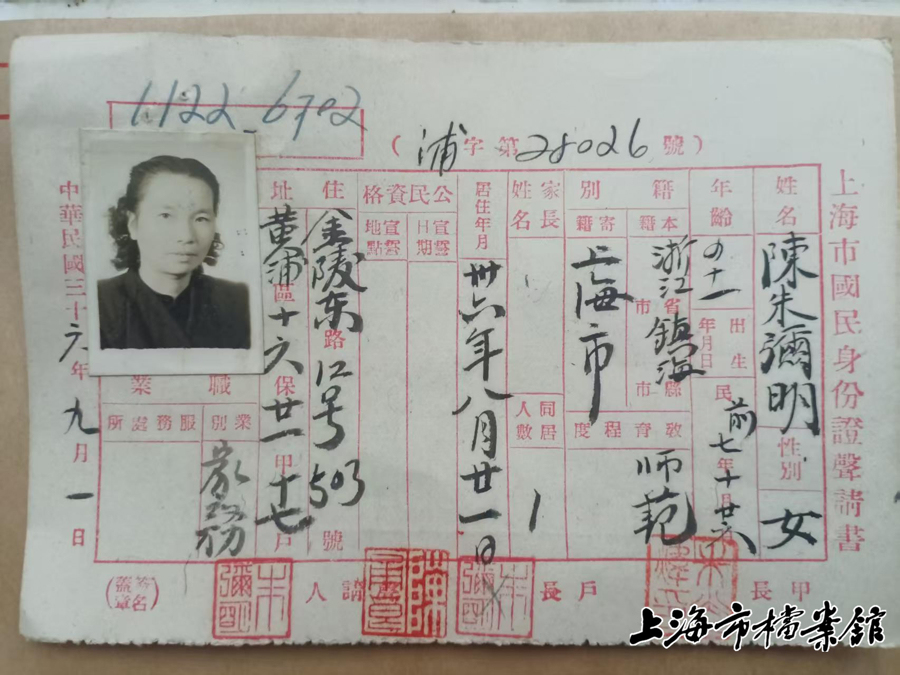 上海市國民身份證聲請書
1122 6702
（浦字第28026號）
姓名 陳朱彌明 性別 女
年齡 四十一 出生年月日 民前七年十月廿六
籍別 本籍 浙江省市 鎮海縣市
寄籍 上海市
教育程度 师范
家長姓名
同居人數 1
居住年月 卅六年八月廿一日
公民資格 宣誓日期 宣誓地點
住址 金陵东路12号503號
黄浦區十六保廿一甲十七戶
職業 業別 家務
服務處所
中華民國三十六年九月一日
甲長
戶長 朱彌明
聲請人 朱彌明
（簽名蓋章）
上海市檔案館